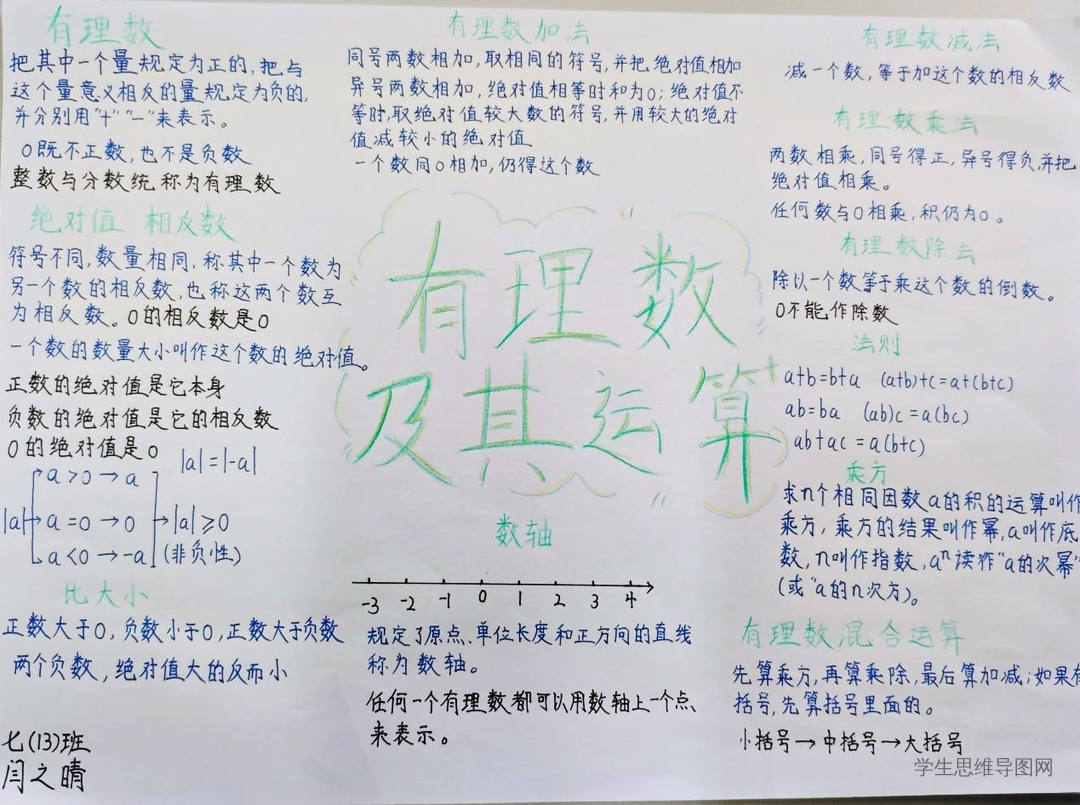 有理数
把其中一个量规定为正的,把与
这个量意义相反的量规定为负的,
并分别用"+""-"来表示。
0既不正数,也不是负数
整数与分数统称为有理数
绝对值 相反数
符号不同,数量相同,称其中一个数为
另一个数的相反数,也称这两个数互
为相反数。0的相反数是0
一个数的数量大小叫作这个数的绝对值。
正数的绝对值是它本身
负数的绝对值是它的相反数
0的绝对值是0
|a|=|-a|
a>0→a
|a| a=0→0 →|a|≥0
a<0→-a (非负性)
比大小
正数大于0,负数小于0,正数大于负数
两个负数,绝对值大的反而小
七(13)班
闫之晴
有理数加法
同号两数相加,取相同的符号,并把绝对值相加
异号两数相加,绝对值相等时和为0;绝对值不
等时,取绝对值较大数的符号,并用较大的绝对
值减较小的绝对值
一个数同0相加,仍得这个数
有理数
及其运算
数轴
-3 -2 -1 0 1 2 3 4
规定了原点、单位长度和正方向的直线
称为数轴。
任何一个有理数都可以用数轴上一个点、
来表示。
有理数减法
减一个数,等于加这个数的相反数
有理数乘法
两数相乘,同号得正,异号得负,并把
绝对值相乘。
任何数与0相乘,积仍为0。
有理数除去
除以一个数等于乘这个数的倒数。
0不能作除数
法则
a+b=b+a (a+b)+c=a+(b+c)
ab=ba (ab)c=a(bc)
ab+ac=a(b+c)
乘方
求n个相同因数a的积的运算叫作
乘方,乘方的结果叫作幂,a叫作底
数,n叫作指数,aⁿ读作"a的次幂"
(或"a的n次方)。
有理数混合运算
先算乘方,再算乘除,最后算加减;如果有
括号,先算括号里面的。
小括号→中括号→大括号
学生思维导图网